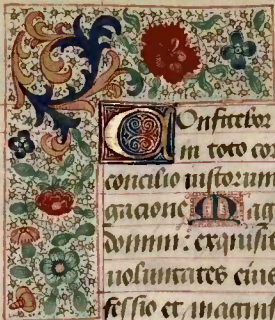 Onfitebor
in toto cor
concilio iustorum
gacione Mag
domini: exquisit
uoluntates eius
fessio et magni